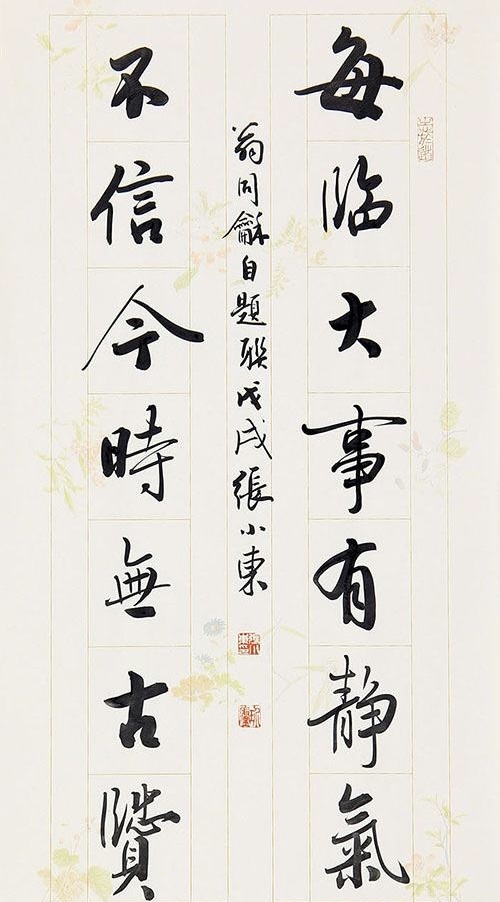 每臨大事有静氣
翁同龢自題聯戊戌張小東
不信今時無古賢